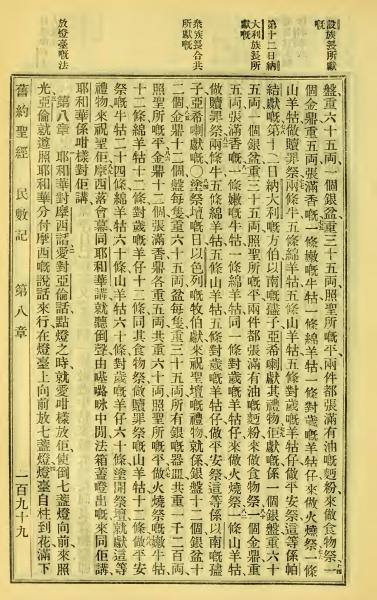 設族長所獻嘅
第十二日納大利族長所獻嘅
衆族長合共所獻嘅
放燈臺嘅法
盤重六十五兩、一個銀盆重三十五兩照聖所嘅平兩件都張滿有油嘅麪粉來做食物祭、一
個金鼎重五兩張滿香嘅、一條嫩嘅牛牯一條綿羊牯一條對歲嘅羊牯仔來做火燒祭一條
山羊牯做贖罪祭兩條牛五條綿羊牯五條山羊牯五條對歲嘅羊牯仔做平安祭這等係帕
結獻嘅第十二日納大利嘅方伯以南嘅子亞希喇獻其禮物佢獻嘅係一個銀盤重六十
五兩一個銀盆重三十五兩照聖所嘅平兩件都張滿有油嘅麪粉來做食物祭一個金鼎重
五兩張滿香嘅一條嫩嘅牛牯一條綿羊牯同一條對歲嘅羊牯仔來做火燒祭一條山羊牯
做贖罪祭兩條牛五條綿羊牯五條山羊牯五條對歲嘅羊牯仔做平安祭這等係以南嘅
子亞希喇獻嘅○塗祭壇嘅日以色列嘅牧伯獻來祝聖壇嘅禮物就係銀盤十二個銀盆十
二個金鼎十二個盤每隻重六十五兩盆每隻重三十五兩所有銀嘅器皿共重一千二百兩、
照聖所嘅平金鼎十二個張滿香鼎各重五兩共重六十兩照聖所嘅平做火燒祭嘅嫩牛牯
十二條綿羊牯十二條對歲嘅羊仔十二條同其食物祭做贖罪祭嘅山羊牯十二條做平安
祭嘅牛牯二十四條綿羊牯六十條山羊牯六十條對歲嘅羊仔六十條塗開祭壇就獻這等
禮物來祝聖佢摩西落會幕同耶和華講就聽倒聲由嚕中間法箱蓋出嘅來同佢講
耶和華係咁樣對佢講
第八章 耶和華對摩西話愛對亞倫話點燈之時就愛咁樣放佢使倒七盞燈向前來照
光亞倫就遵照耶和華分付摩西嘅說話來行在燈臺上向前放七盞燈燈臺自柱到花滿下
舊約聖經 民數記 第八章 一百九十九